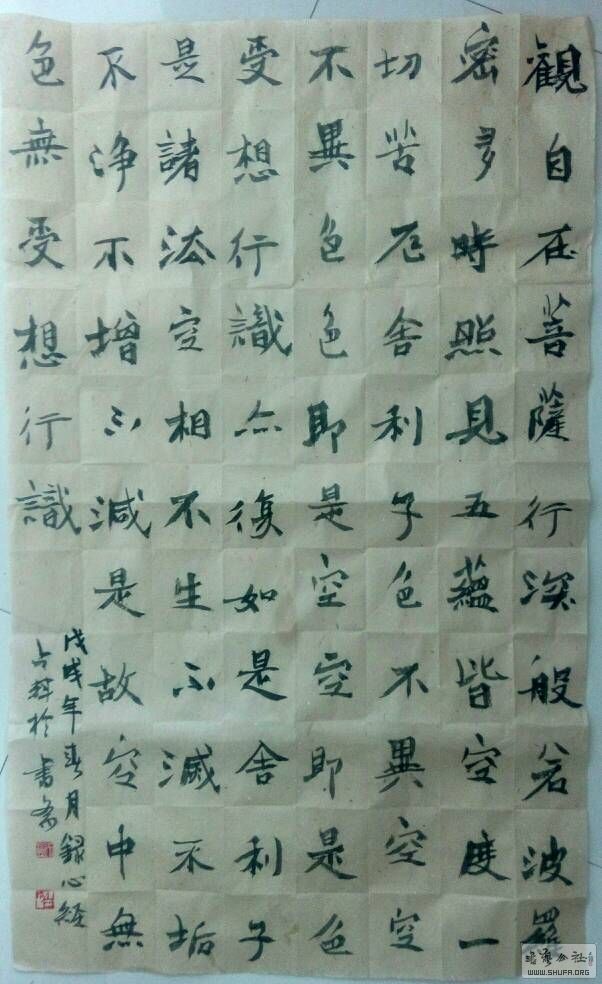 觀自在菩薩行深般若波羅
密多時照見五蘊皆空度一
切苦厄舍利子色不異空空
不異色色即是空空即是色
受想行識亦復如是舍利子
是諸法空相不生不滅不垢
不淨不增不減是故空中無
色無受想行識
戊戌年春月錄心經
於書齋
WWW.SHUFA.ORG